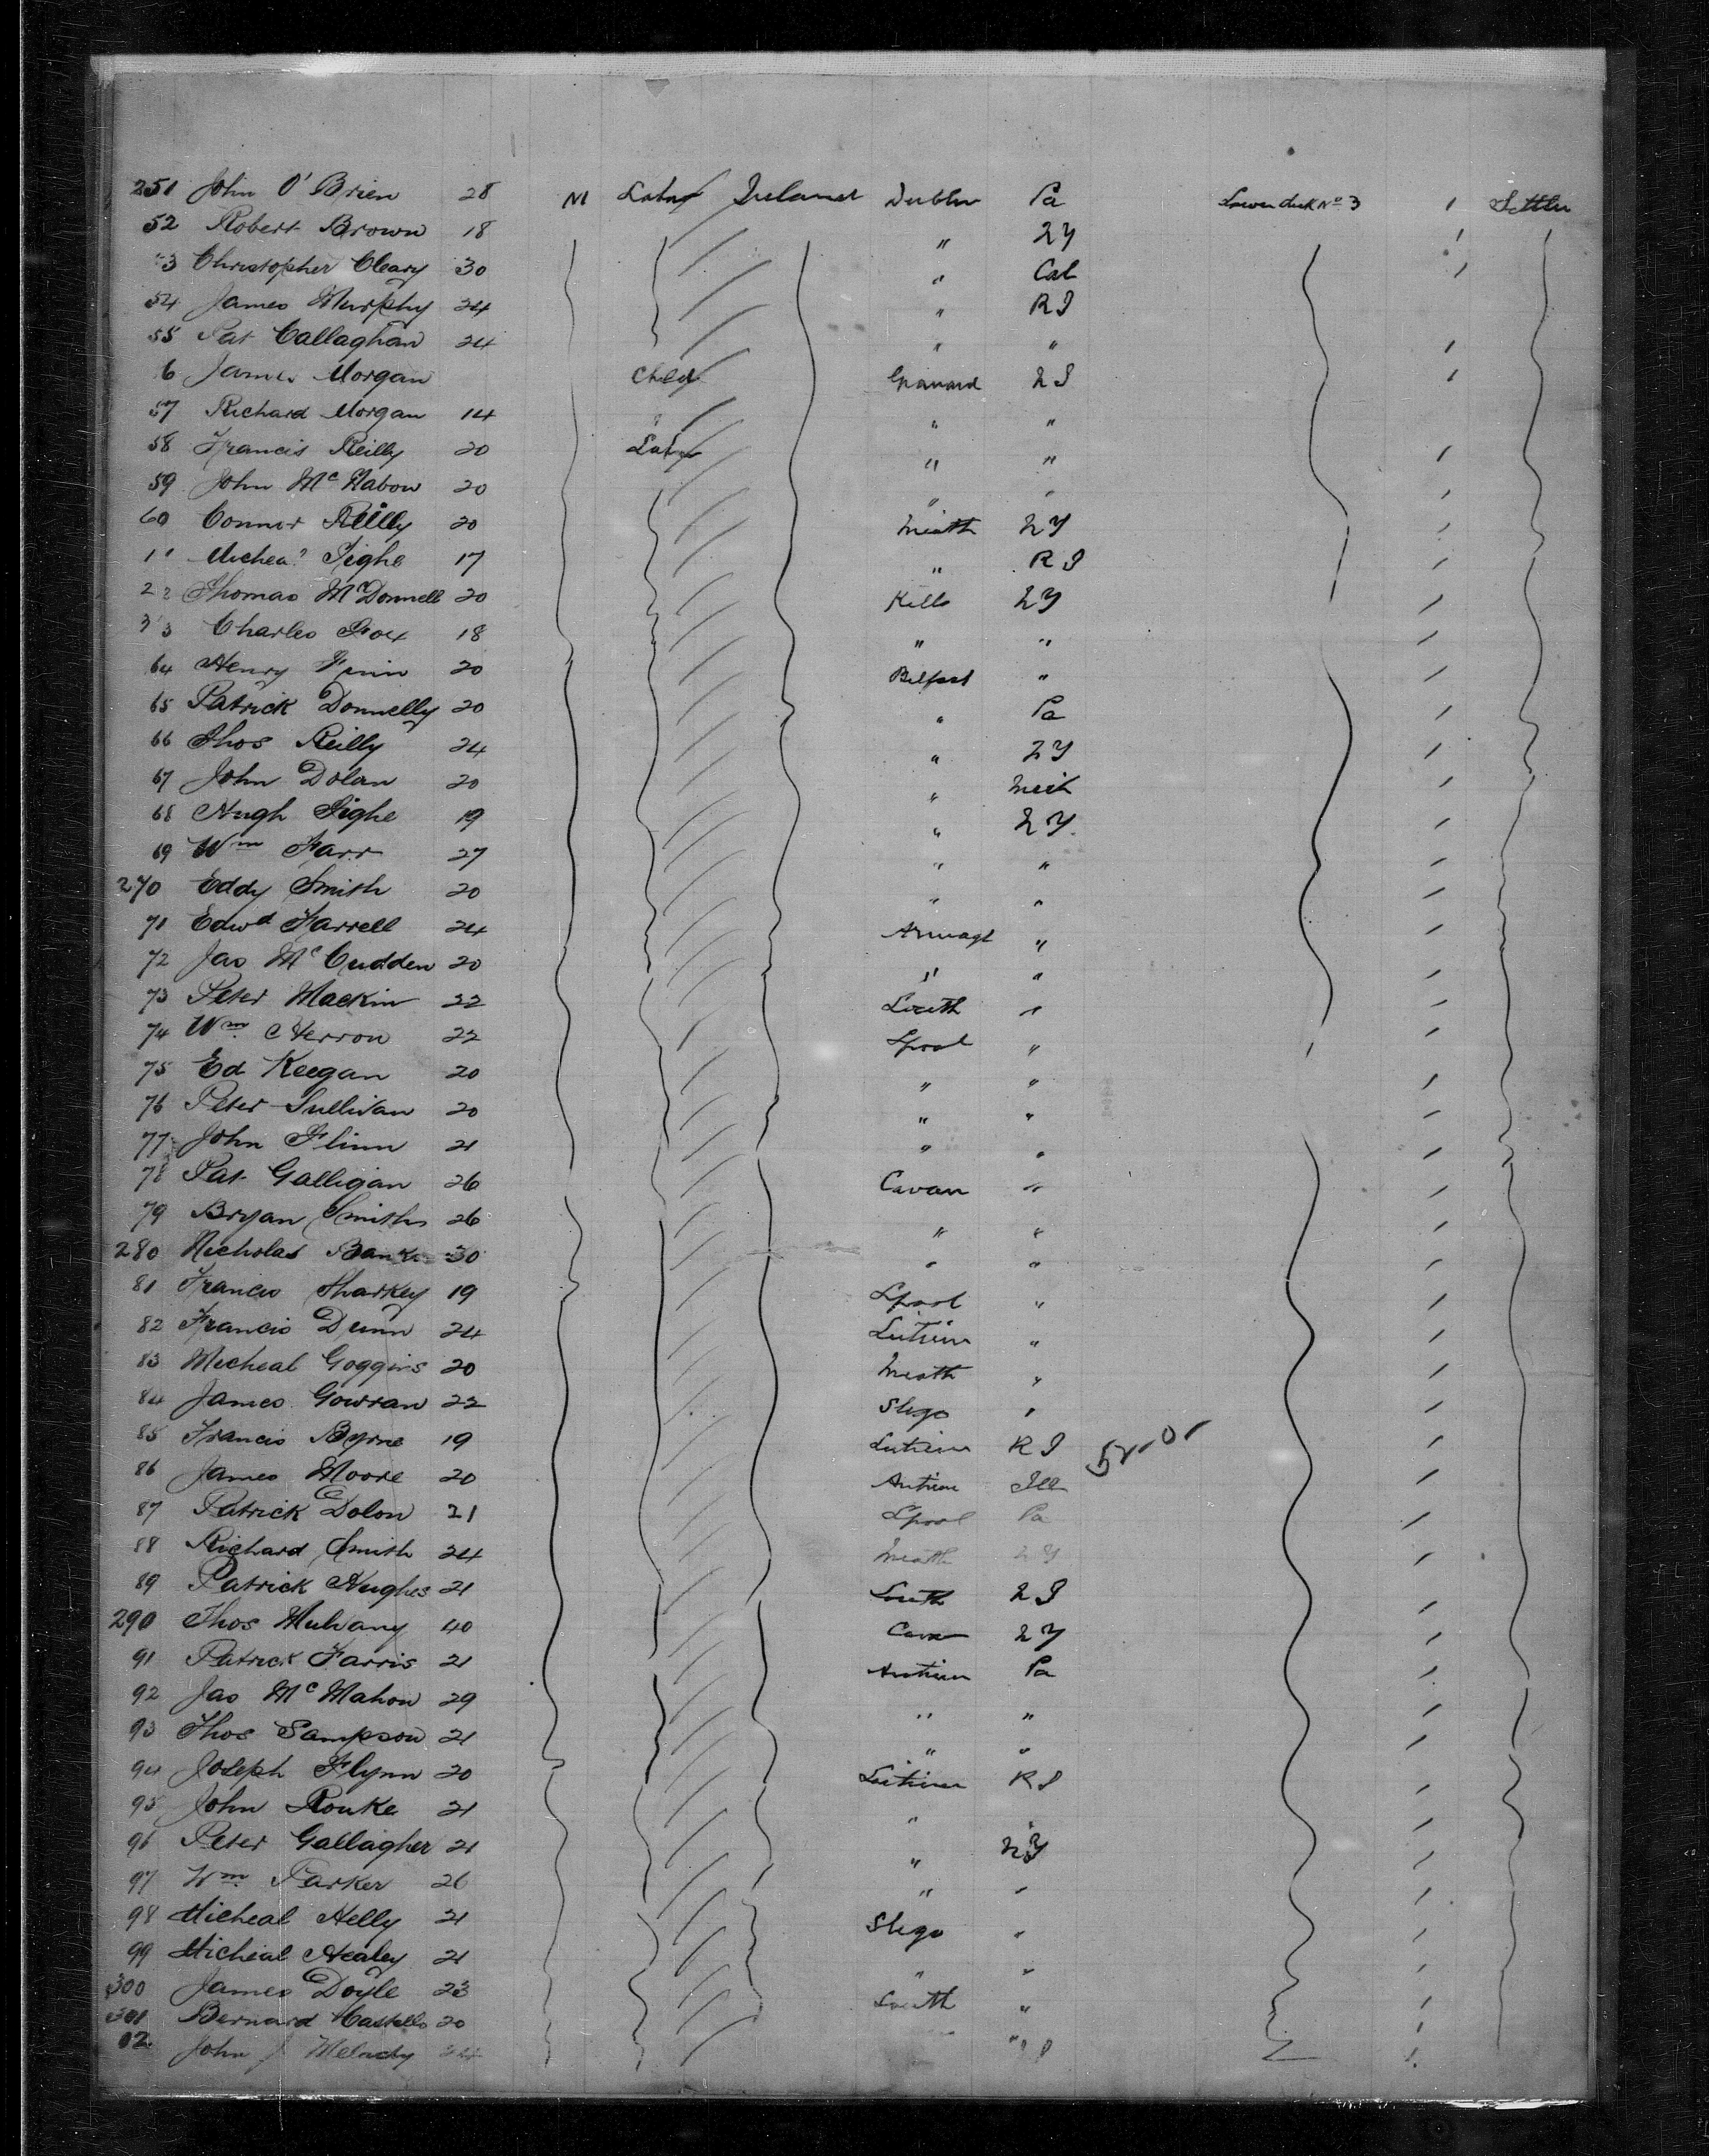 251 John O'Brien 28 M Labr Ireland Dublin Pa Lower deck No 3 1 Settler
52 Robert Brown 18 " NY
53 Christopher Cleary 30 " Cal
54 James Murphy 24 " RI
55 Pat Callaghan 24 " "
6 James Morgan Child Granard NJ
57 Richard Morgan 14 " " "
58 Francis Reilly 20 Labr " "
59 John McNabow 20 " "
60 Connor Reilly 20 Meath NY
1 Micheal Tighe 17 " RI
2 Thomas McDonnell 20 Kells NY
3 Charles Fox 18 " "
64 Henry Finn 20 Belfast "
65 Patrick Donnelly 20 " Pa
66 Thos Reilly 24 " NY
67 John Dolan 20 " Mich
68 Hugh Tighe 19 " NY
69 Wm Farr 27 " "
270 Eddy Smith 20 " "
71 Edwd Farrell 24 Armagh "
72 Jas McCudden 20 " "
73 Peter Mackin 22 Louth "
74 Wm Herron 22 Lpool "
75 Ed Keegan 20 " "
76 Peter Sullivan 20 " "
77 John Flinn 21 " "
78 Pat Galligan 26 Cavan "
79 Bryan Smith 26 " "
280 Nicholas Banks 30 " "
81 Francis Sharkey 19 Lpool "
82 Francis Dunn 24 Leitrim "
83 Micheal Goggins 20 Meath "
84 James Gowran 22 Sligo "
85 Francis Byrne 19 Leitrim RI
86 James Moore 20 Antrim Ill
87 Patrick Dolon 21 Lpool Pa
88 Richard Smith 24 Meath NY
89 Patrick Hughes 21 Louth NJ
290 Thos Mulvany 40 Cavan NY
91 Patrick Farris 21 Antrim Pa
92 Jas McMahon 29 " "
93 Thos Sampson 21 " "
94 Joseph Flynn 20 Leitrim RI
95 John Rouke 21 " "
96 Peter Gallagher 21 " NY
97 Wm Parker 26 " "
98 Micheal Helly 21 Sligo "
99 Micheal Healey 21 " "
300 James Doyle 23 Louth "
301 Bernard Castello 20 "
02 John J Melady 24